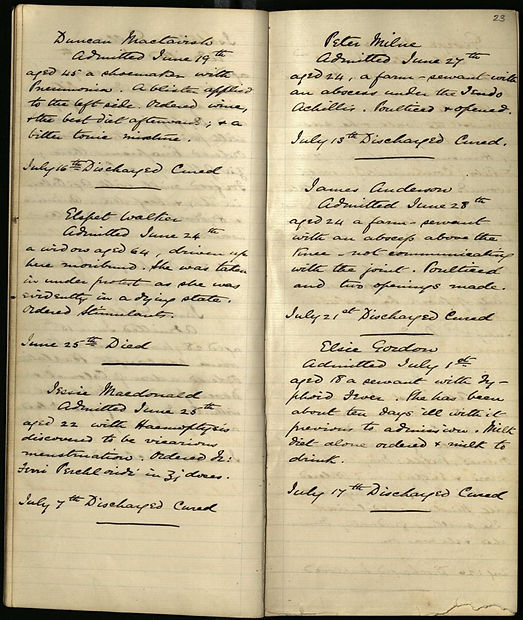 Duncan Mactavish
Admitted June 19th
aged 45 a shoemaker with
Pneumonia. A blister applied
to the left side. Ordered wine,
& the best diet afterwards; & a
bitter tonic mixture.
July 16th Discharged Cured
Elspet Walker
Admitted June 24th
a widow aged 64, driven up
here moribund. She was taken
in under protest as she was
evidently in a dying state.
Ordered Stimulants.
June 25th Died
Jessie Macdonald
Admitted June 25th
aged 22 with Haemoptysis
discovered to be vicarious
menstruation. Ordered Tr:
Ferri Perchloridi in ʒj doses.
July 7th Discharged Cured
23
Peter Milne
Admitted June 27th
aged 24, a farm-servant with
an abscess under the Tendo
Achillis. Poulticed & opened.
July 13th Discharged Cured.
James Anderson
Admitted June 28th
aged 24 a farm-servant
with an abscess above the
Knee - not communicating
with the joint. Poulticed
and two openings made.
July 21st Discharged Cured
Elsie Gordon
Admitted July 1st
aged 18 a servant with Ty-
phoid Fever. She has been
about ten days ill with it
previous to admission. Milk
diet alone ordered & milk to
drink.
July 17th Discharged Cured